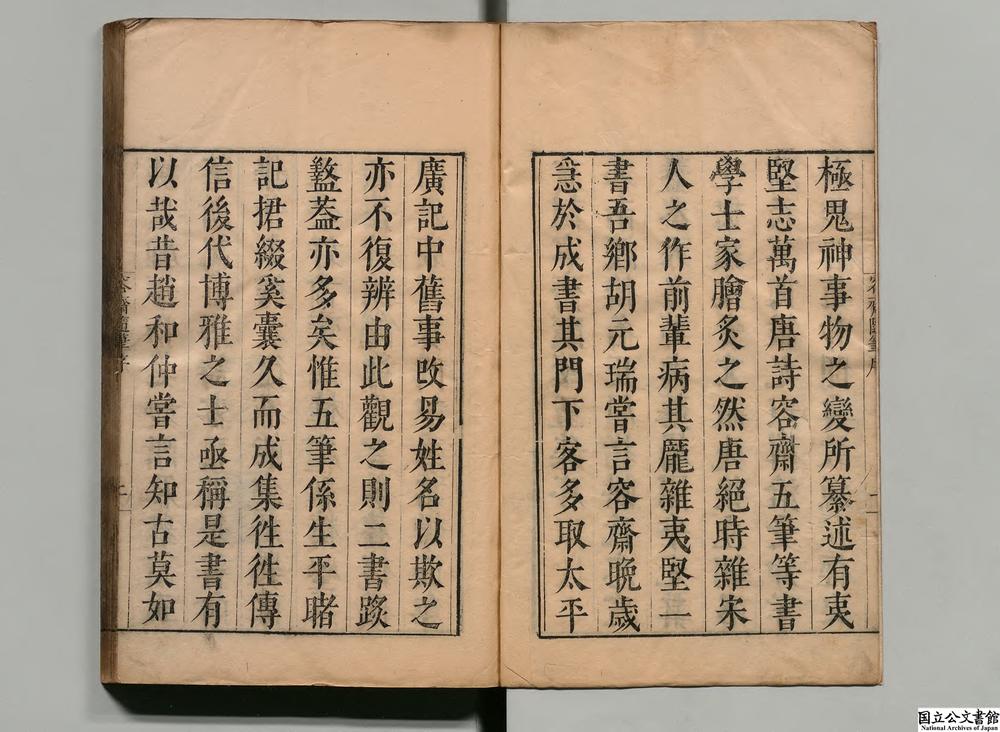 極鬼神事物之變所纂述有夷
堅志萬首唐詩容齋五筆等書
學士家膾炙之然唐絕時雜宋
人之作前輩病其龐雜夷堅一
書吾鄉胡元瑞嘗言容齋晚歲
急於成書其門下客多取太平
廣記中舊事改易姓名以欺之
亦不復辨由此觀之則二書踳
盭葢亦多矣惟五筆係生平睹
記捃綴奚囊久而成集徃徃傳
信後代博雅之士亟稱是書有
以哉昔趙和仲嘗言知古莫如
容齋隨筆序
二
国立公文書館
National Archives of Japan